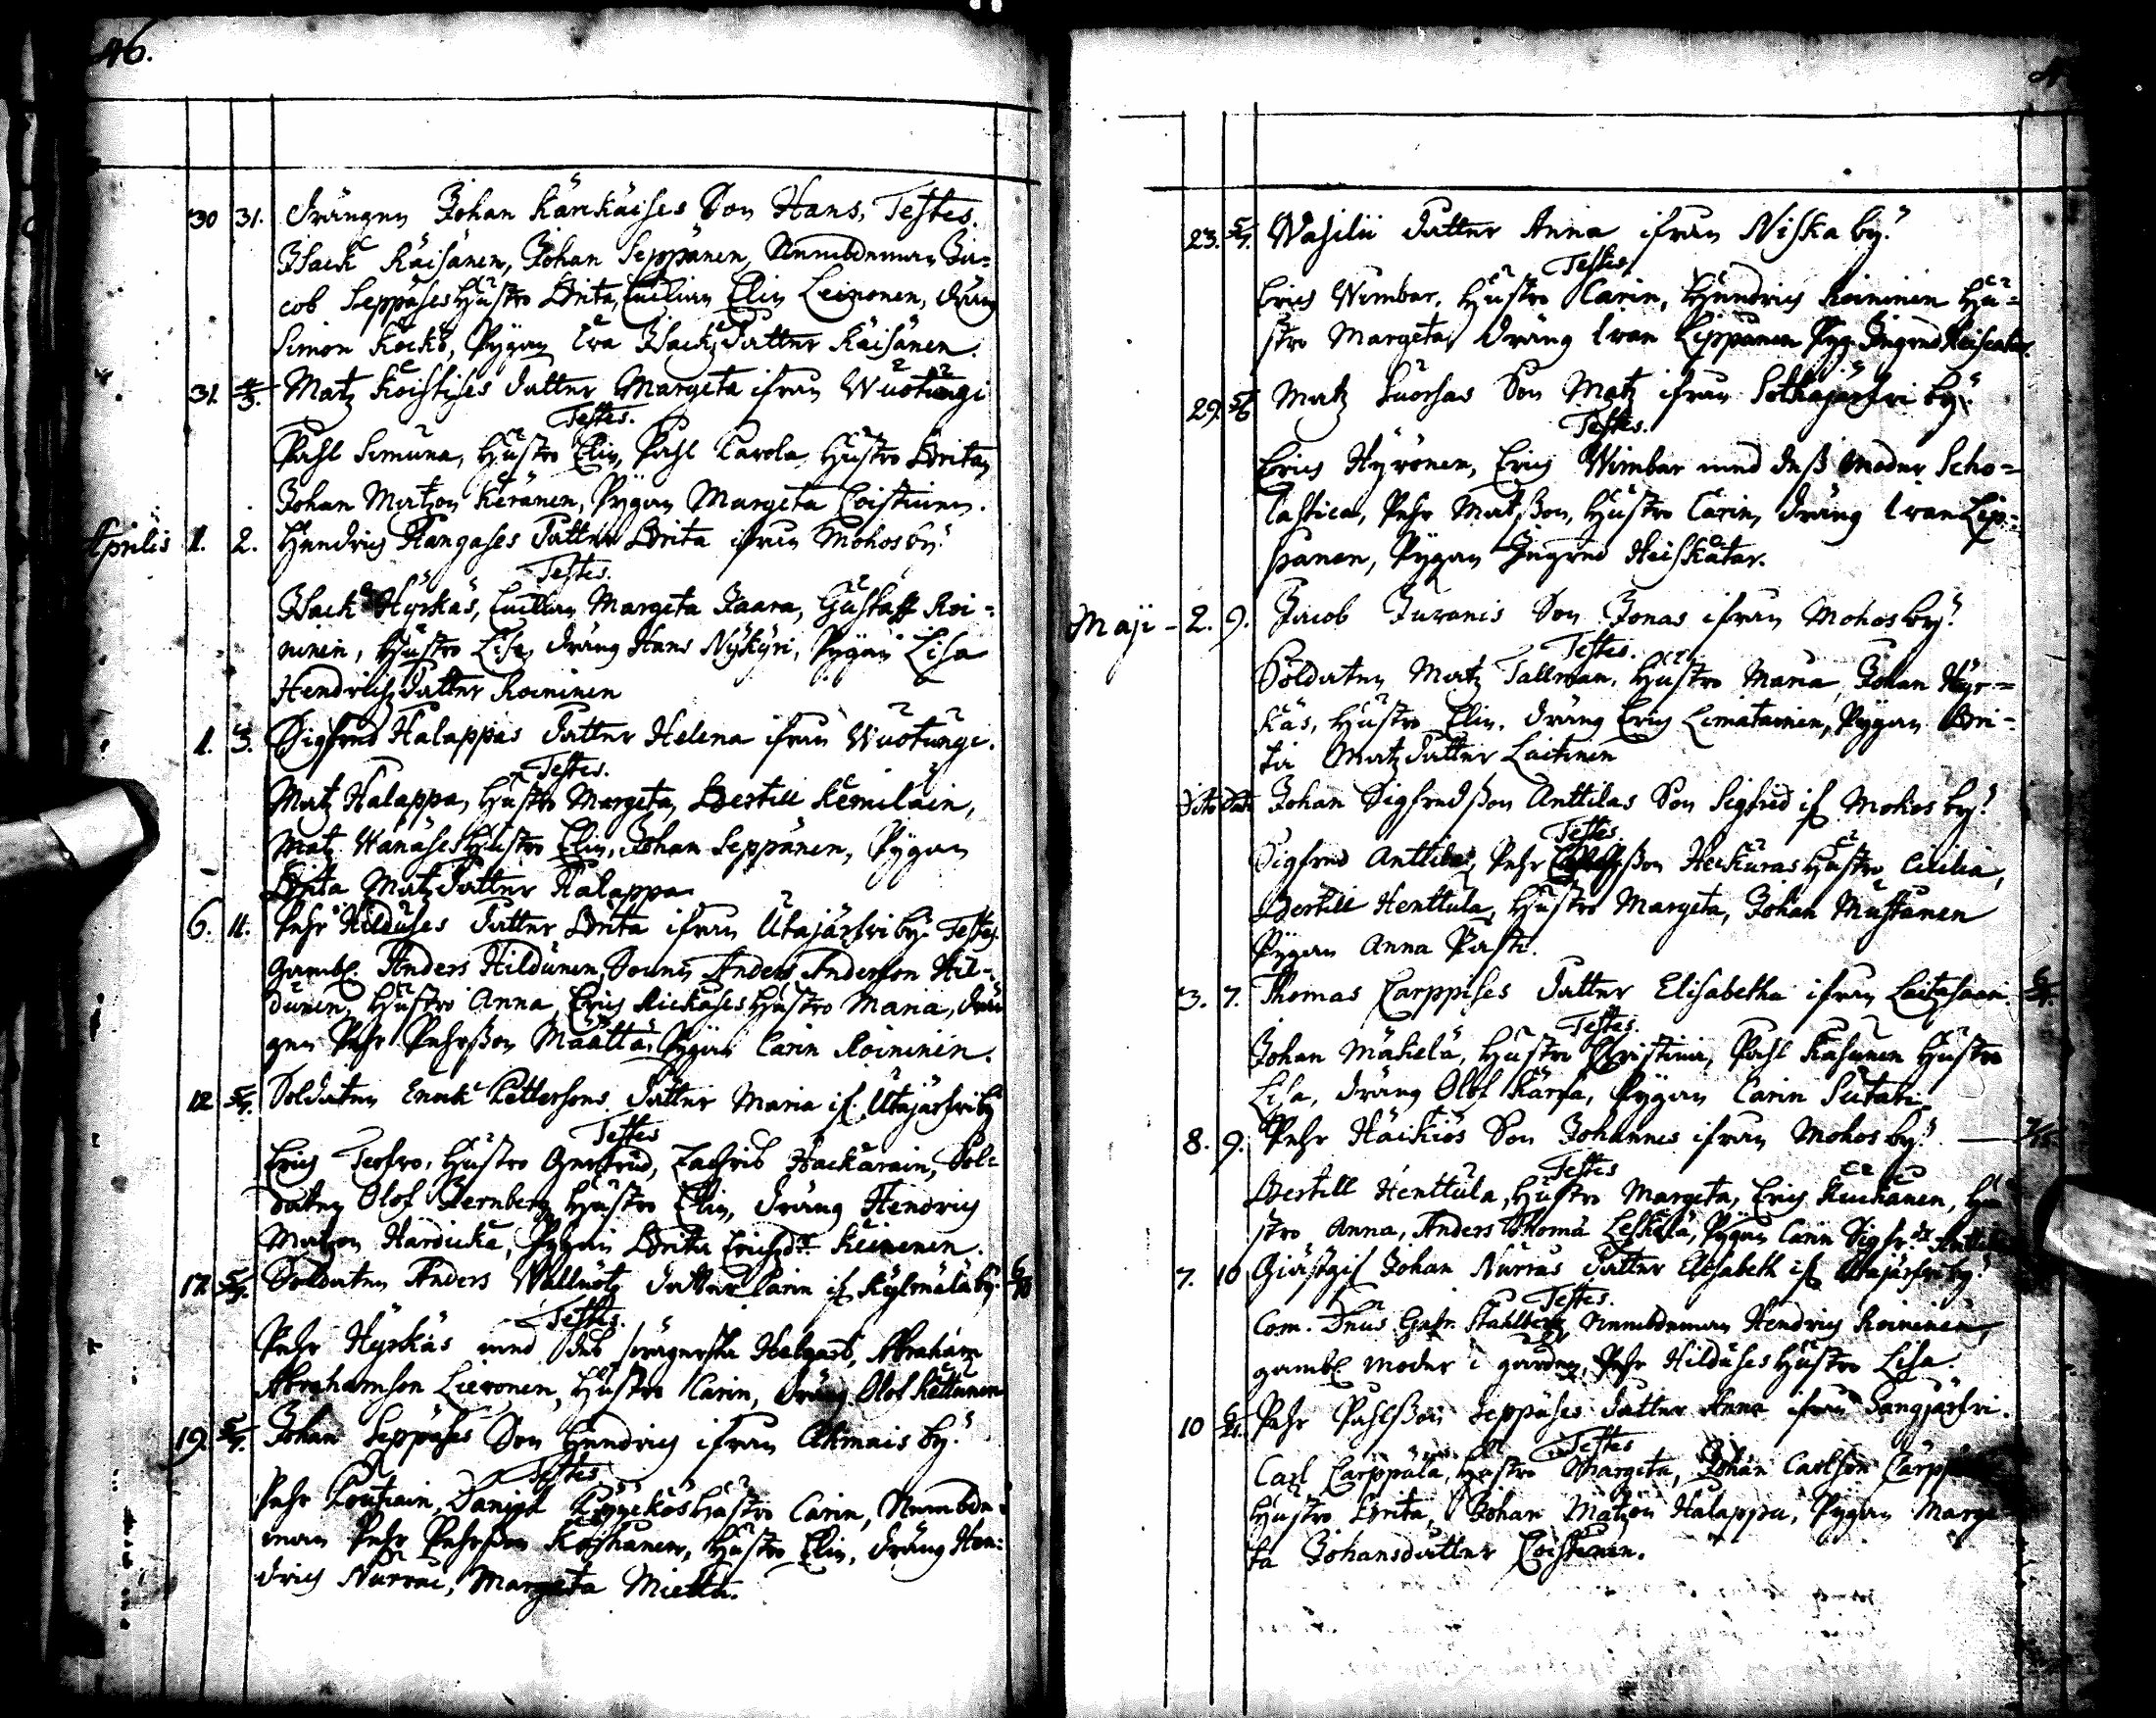 46.
30 31. Drängen Johan Kärckäises Son Hans, Testes.
Isack Räisänen, Johan Seppänen, Nembdeman Ja=
cob Seppäses Hustro Brita, Enckian Elin Leinonen, dräng
Simon Kocko, Pygan Eva Isacksdatter Räisänen.
31. 4/3. Matz Koistises datter Margeta ifrån Wuotungi
Testes.
Påhl Simuna, Hustro Elin, Påhl Carola Hustro Brita,
Johan Matzon Keränen, Pygan Margeta Coistinen.
Aprilis 1. 2. Hendrich Kangases datter Brita ifrån Mohos by.
Testes.
Isack Hyrkäs, Enckian Margeta Jaara, Gustaff Roi=
ninen, Hustro Lisa, dräng Hans Nykyri, Pygan Lisa
Hendrichsdatter Roininen
1. 4/3. Sigfred Halappas datter Helena ifrån Wuotungi.
Testes.
Matz Halappa, Hustro Margeta, Bertill Kemiläin,
Matz Wänäses Hustro Elin, Johan Seppänen, Pygan
Brita Matzdatter Halappa
6. 11. Pehr Hilduses datter Brita ifrån Utajärfvi by. Testes.
gambl. Anders Hildunen, Sonen Anders Anderson Hil=
dunen, Hustro Anna, Erich Rickases Hustro Maria, drän
gen Pehr Pehrsson Määttä, Pygan Carin Roininen.
12 5/7. Soldaten Enock Pettersons datter Maria if. Utajärfvi by
Testes
Erich Terfvo, Hustro Gertrud, Zachris Hackarain, Sol=
daten Olof Bernberg Hustro Elin, dräng Hendrich
Matzon Hardicka, Pygan Brita Erichsdr. Keinenen.
17. 5/7. Soldaten Anders Wallnötz datter Carin if. Kylmälä by. 6/18
Testes.
Pehr Hyrkäs med des swägerska Walborg, Abraham
Abrahamson Lieronen, Hustro Carin, dräng Olof Kettunen
19. 5/7. Johan Seppäses Son Hendrich ifrån Ahmais by.
Testes
Pehr Coutiain, Daniel Köyckös Hustro Carin, Nembde=
man Pehr Pehrsson Koskanen, Hustro Elin, dräng Hen=
drich Nurrai, Margeta Mietta.
23. 5/7. Wasilii datter Anna ifrån Niska by.
Testes.
Erich Wimbar, Hustro Carin, Hendrich Roininen Hu=
stro Margeta, dräng Iwan Lippanen Pyg. Ingred Heiskatar.
29. 5/6 Matz Luosuas Son Matz ifrån Sotkajärfvi by.
Testes.
Erich Hyrönen, Erich Wimbar med dess Moder Scho=
lastica, Pehr Matsson, Hustro Carin, dräng Iwan Lip=
panen, Pygan Ingred Heiskatar.
Maji - 2. 9. Jacob Juvanis Son Jonas ifrån Mohos by.
Testes.
Soldaten Matz Tallman, Hustro Maria, Johan Hyr=
käs, Hustro Elin, dräng Erich Limatainen, Pygan Bri=
ta Matzdatter Laitinen
Dito Dato Johan Sigfredsson Anttilas Son Sigfred if. Mohos by.
Testes.
Sigfred Anttila, Pehr Heikuras Hustro Cicilia,
Bertill Henttula, Hustro Margeta, Johan Mustanen
Pygan Anna Pasti.
3. 7. Thomas Carppises datter Elisabetha ifrån Laitasaari
Testes.
Johan Mäkelä, Hustro Christina, Påhl Kasunen Hustro
Lisa, dräng Olof Kärfä, Pygan Carin Sutati
8. 9. Pehr Häikiös Son Johannes ifrån Mohos by.
Testes
Bertill Henttula, Hustro Margeta, Erich Kuckanen, Hu
stro Anna, Anders Thoma Leskelä, Pygan Carin Sigfr. dr Anttila
7. 10 Giästgif Johan Nurras datter Elisabeth if. Utajärfvi by.
Testes.
Com. Dnus Gabr. Stahlberg, Nembdeman Hendrich Roininen,
gambl. moder i gården, Pehr Hilduses Hustro Lisa.
10 Pehr Påhlsson Seppäses datter Anna ifrån Sangjärfvi.
Testes
Carl Carppala, Hustro Margeta, Johan Carlson
Hustro Brita, Johan Matzon Halappa, Pygan Marge
ta Johansdatter Coistinen.